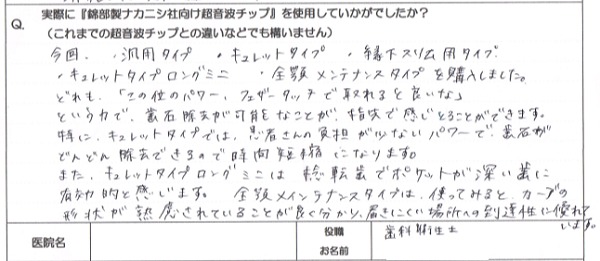 Q. 実際に『錦部製ナカニシ社向け超音波チップ』を使用していかがでしたか？
（これまでの超音波チップとの違いなどでも構いません）
今回、・汎用タイプ ・キュレットタイプ ・縁下スリム用タイプ
・キュレットタイプロングミニ ・全顎メンテナンスタイプを購入しました。
どれも、「この位のパワー、フェザータッチで取れると良いな」
という力で、歯石除去が可能なことが、指先で感じとることができます。
特に、キュレットタイプでは、患者さんの負担が少ないパワーで、歯石が
どんどん除去できるので時間短縮になります。
また、キュレットタイプロングミニは 捻転歯でポケットが深い歯に
有効的と感じます。 全顎メインテナンスタイプは、使ってみると、カーブの
形状が熟慮されていることが良く分かり、届きにくい場所への到達性に優れて
います。
医院名
役職
お名前
歯科衛生士